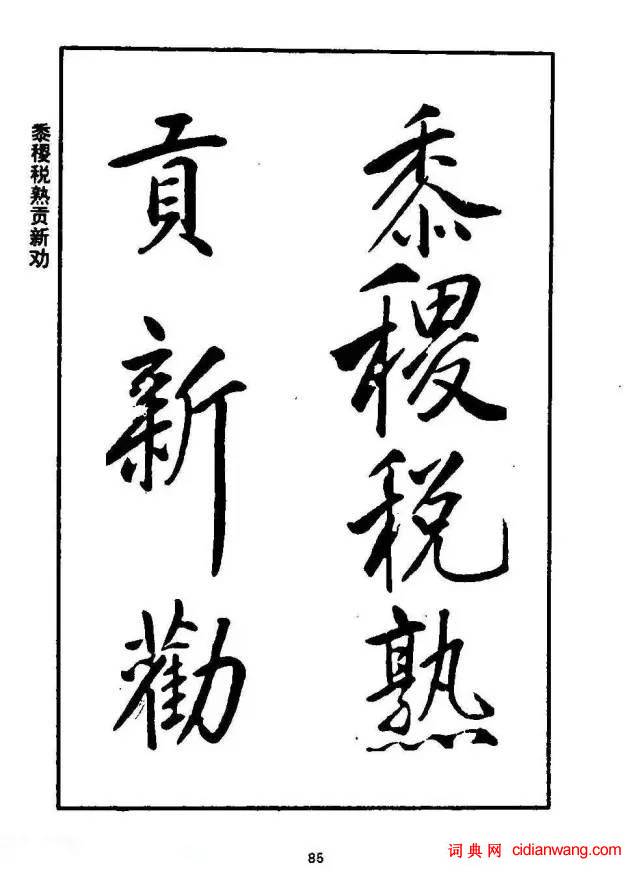 黍稷税熟
貢新勸
黍稷税熟贡新劝
85
词典网 cidianwang.com